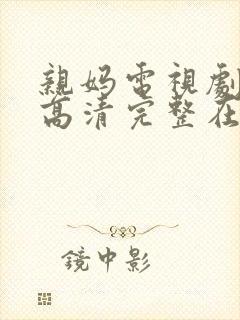 親妈電視劇
高清完整在
鏡中影